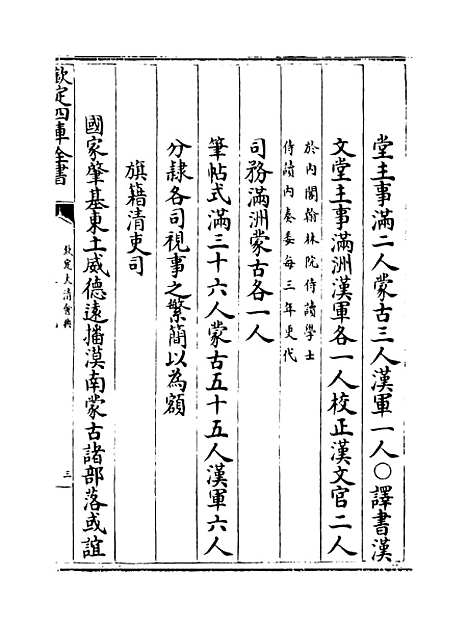 堂主事滿二人蒙古三人漢軍一人〇譯書漢
文堂主事滿洲漢軍各一人校正漢文官二人
於内閣翰林院侍讀學士
侍讀内奏委每三年更代
司務滿洲蒙古各一人
筆帖式滿三十六人蒙古五十五人漢軍六人
分隷各司視事之繁簡以為額
旗籍清吏司
國家肇基東土威德遠播漠南蒙古諸部落或誼
欽定四庫全書
欽定大清會典
三